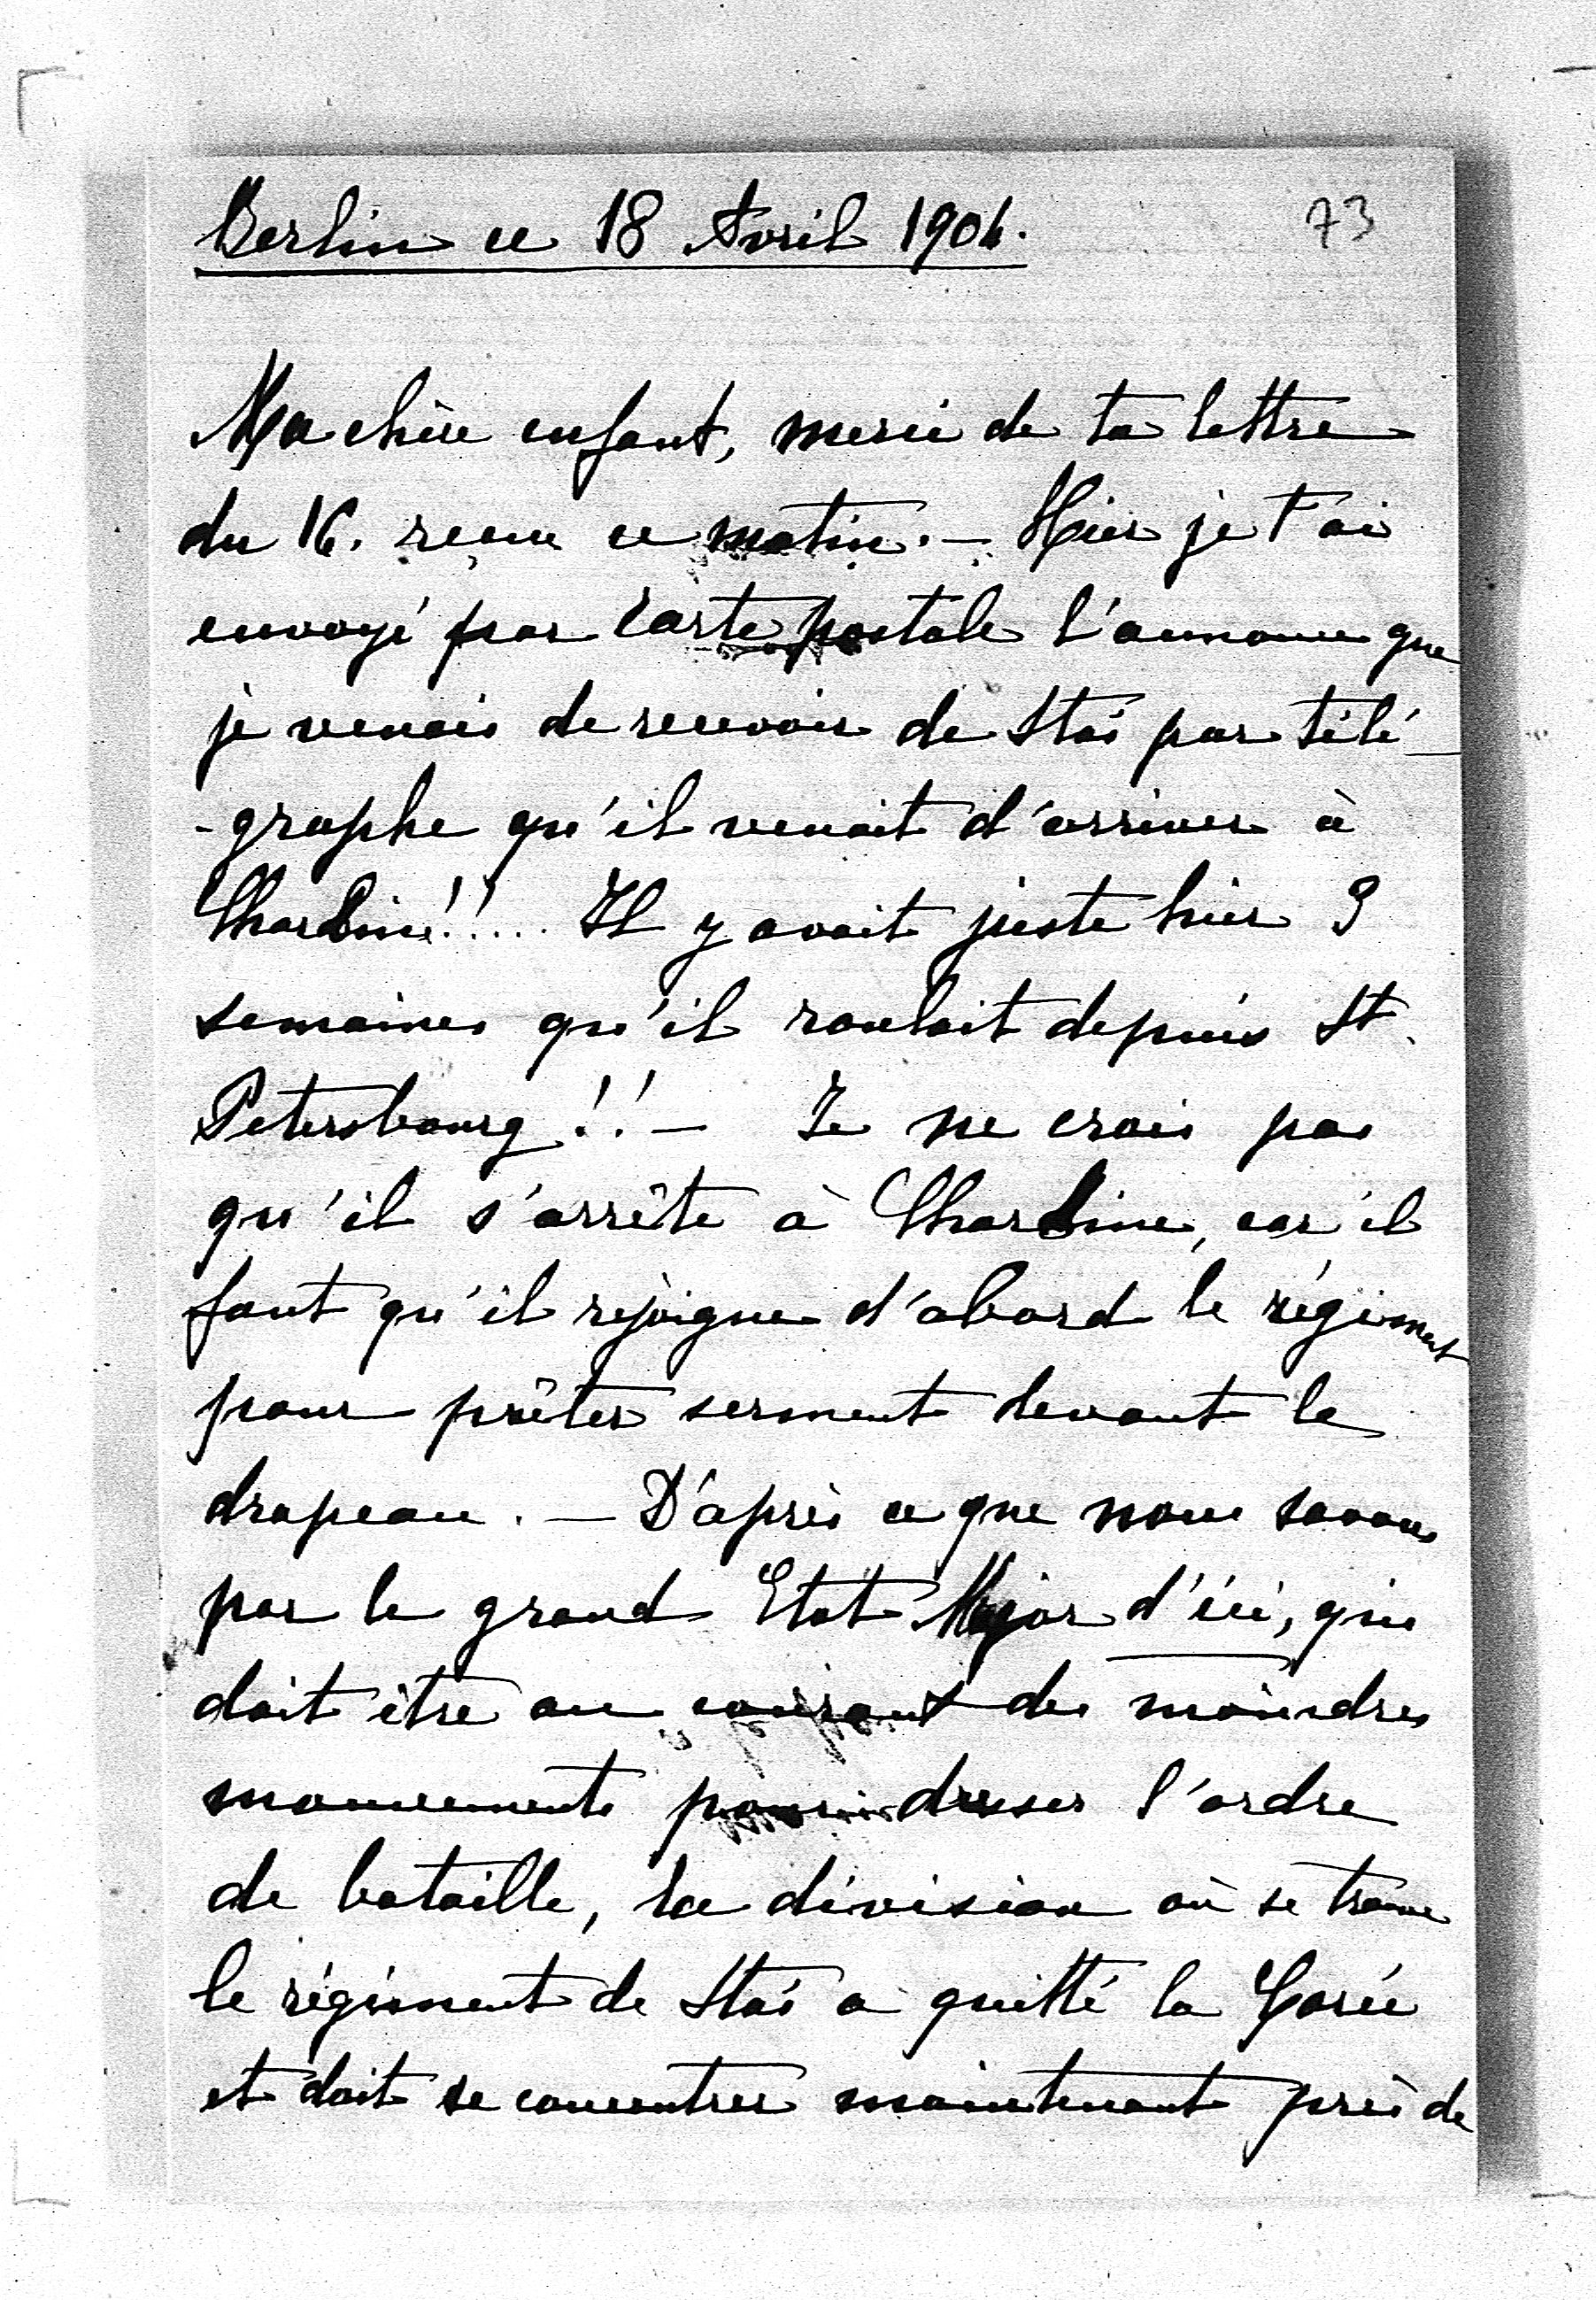 Berlin ce 18 Avril 1904.
73
Ma chère enfant, merci de ta lettre
du 16. reçue ce matin. — Hier je t'ai
envoyé par Carte postale l'annonce que
je venais de recevoir de Stas par télé-
-graphe qu'il venait d'arriver à
Charbine!!.... Il y avait juste hier 3
semaines qu'il roulait depuis St.
Petersbourg!! — Je ne crois pas
qu'il s'arrête à Charbine, car il
faut qu'il rejoigne d'abord le régiment
pour prêter serment devant le
drapeau. — D'après ce que nous savons
par le grand Etat Major d'ici, qui
doit être au courant des moindres
mouvements pour dresser l'ordre
de bataille, la division où se trouve
le régiment de Stas a quitté la Corée
et doit se concentrer maintenant près de